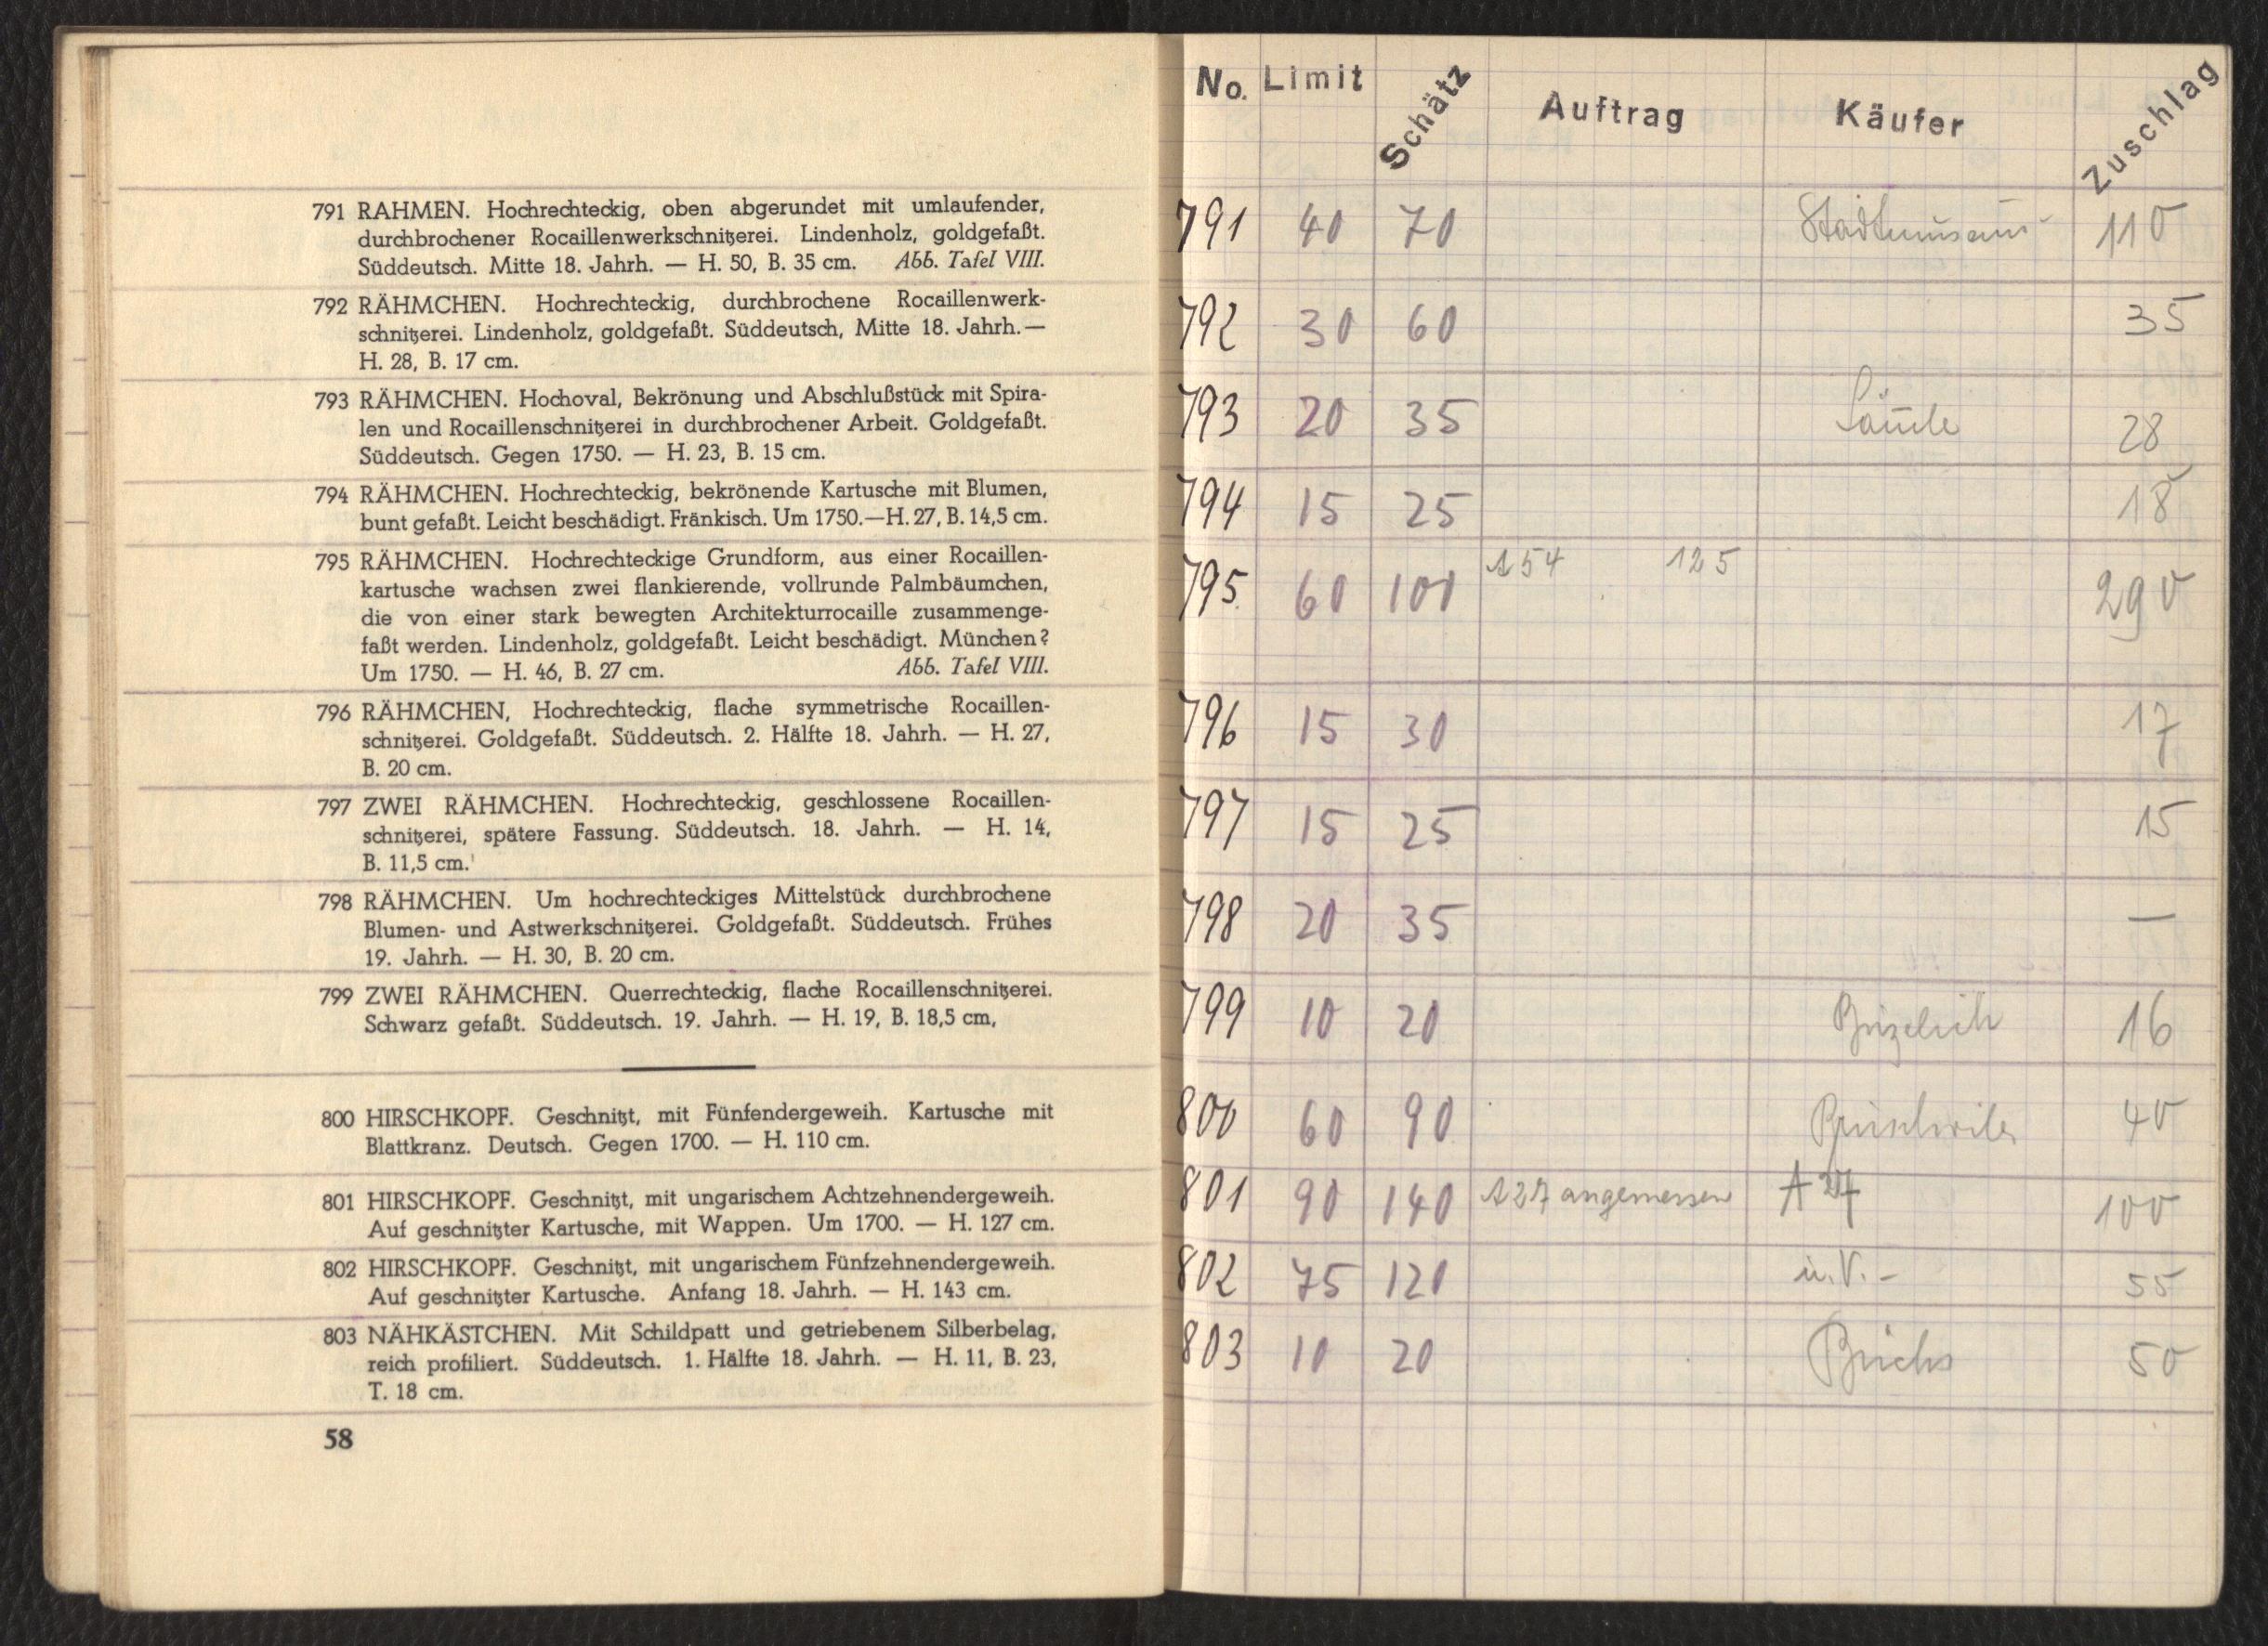 791 RAHMEN. Hochrechteckig, oben abgerundet mit umlaufender,
durchbrochener Rocaillenwerkschnitzerei. Lindenholz, goldgefaßt.
Süddeutsch. Mitte 18. Jahrh. — H. 50, B. 35 cm. Abb. Tafel VIII.
792 RÄHMCHEN. Hochrechteckig, durchbrochene Rocaillenwerk-
schnitzerei. Lindenholz, goldgefaßt. Süddeutsch, Mitte 18. Jahrh.—
H. 28, B. 17 cm.
793 RÄHMCHEN. Hochoval, Bekrönung und Abschlußstück mit Spira-
len und Rocaillenschnitzerei in durchbrochener Arbeit. Goldgefaßt.
Süddeutsch. Gegen 1750. — H. 23, B. 15 cm.
794 RÄHMCHEN. Hochrechteckig, bekrönende Kartusche mit Blumen,
bunt gefaßt. Leicht beschädigt. Fränkisch. Um 1750.—H. 27, B. 14,5 cm.
795 RÄHMCHEN. Hochrechteckige Grundform, aus einer Rocaillen-
kartusche wachsen zwei flankierende, vollrunde Palmbäumchen,
die von einer stark bewegten Architekturrocaille zusammenge-
faßt werden. Lindenholz, goldgefaßt. Leicht beschädigt. München?
Um 1750. — H. 46, B. 27 cm. Abb. Tafel VIII.
796 RÄHMCHEN, Hochrechteckig, flache symmetrische Rocaillen-
schnitzerei. Goldgefaßt. Süddeutsch. 2. Hälfte 18. Jahrh. — H. 27,
B. 20 cm.
797 ZWEI RÄHMCHEN. Hochrechteckig, geschlossene Rocaillen-
schnitzerei, spätere Fassung. Süddeutsch. 18. Jahrh. — H. 14,
B. 11,5 cm.
798 RÄHMCHEN. Um hochrechteckiges Mittelstück durchbrochene
Blumen- und Astwerkschnitzerei. Goldgefaßt. Süddeutsch. Frühes
19. Jahrh. — H. 30, B. 20 cm.
799 ZWEI RÄHMCHEN. Querrechteckig, flache Rocaillenschnitzerei.
Schwarz gefaßt. Süddeutsch. 19. Jahrh. — H. 19, B. 18,5 cm,
800 HIRSCHKOPF. Geschnitzt, mit Fünfendergeweih. Kartusche mit
Blattkranz. Deutsch. Gegen 1700. — H. 110 cm.
801 HIRSCHKOPF. Geschnitzt, mit ungarischem Achtzehnendergeweih.
Auf geschnitzter Kartusche, mit Wappen. Um 1700. — H. 127 cm.
802 HIRSCHKOPF. Geschnitzt, mit ungarischem Fünfzehnendergeweih.
Auf geschnitzter Kartusche. Anfang 18. Jahrh. — H. 143 cm.
803 NÄHKÄSTCHEN. Mit Schildpatt und getriebenem Silberbelag,
reich profiliert. Süddeutsch. 1. Hälfte 18. Jahrh. — H. 11, B. 23,
T. 18 cm.
58
No. Limit Schätz Auftrag Käufer Zuschlag
791 40 70 Stadtmuseum 110
792 30 60 35
793 20 35 28
794 15 25 18
795 60 100 A54 125 290
796 15 30 17
797 15 25 15
798 20 35 —
799 10 20 16
800 60 90 40
801 90 140 A27 angemessen A 27 100
802 75 120 u.V. - 55
803 10 20 50